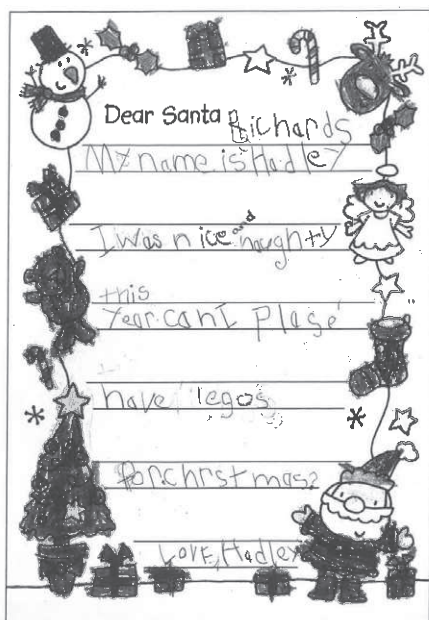 Dear Santa Richards
My name is Hadley
I was nice and naughty
this
year. can I plase
have legos
for chrstmas?
Love, Hadley